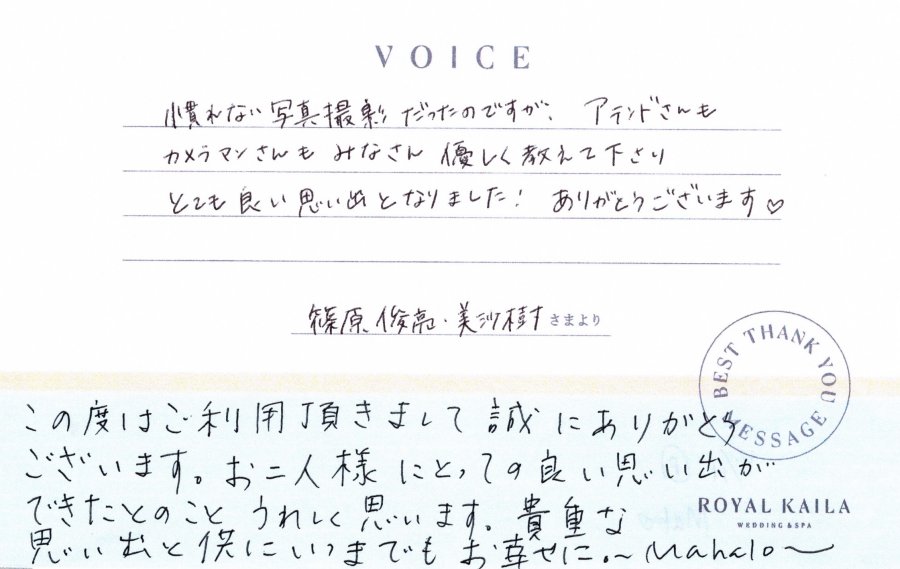 VOICE
慣れない写真撮影だったのですが、アテンドさんも
カメラマンさんもみなさん優しく教えて下さり
とても良い思い出となりました！ありがとうございます♡
篠原俊亮・美沙樹さまより
BEST THANK YOU MESSAGE
この度はご利用頂きまして誠にありがとう
ございます。お二人様にとっての良い思い出が
できたとのことうれしく思います。貴重な
ROYAL KAILA
WEDDING & SPA
思い出と供にいつまでもお幸せに。〜Mahalo〜